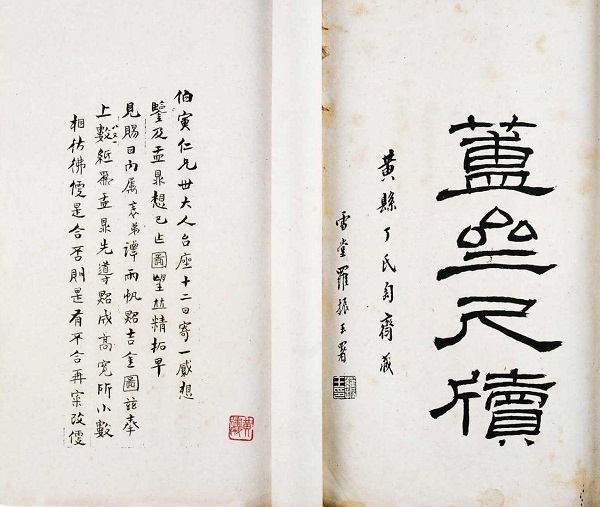 簠亝尺牘
黃縣丁氏匋齋藏
雪堂羅振玉署
伯寅仁兄世大人台座十二日寄一緘想
鑒及盂鼎想已 圖望 精拓早
見賜日內屬袁弟譚雨帆點吉金圖茲奉
上數紙爲盂鼎先導點成高寬所小數
相彷彿便是合否則是有不合再案改便